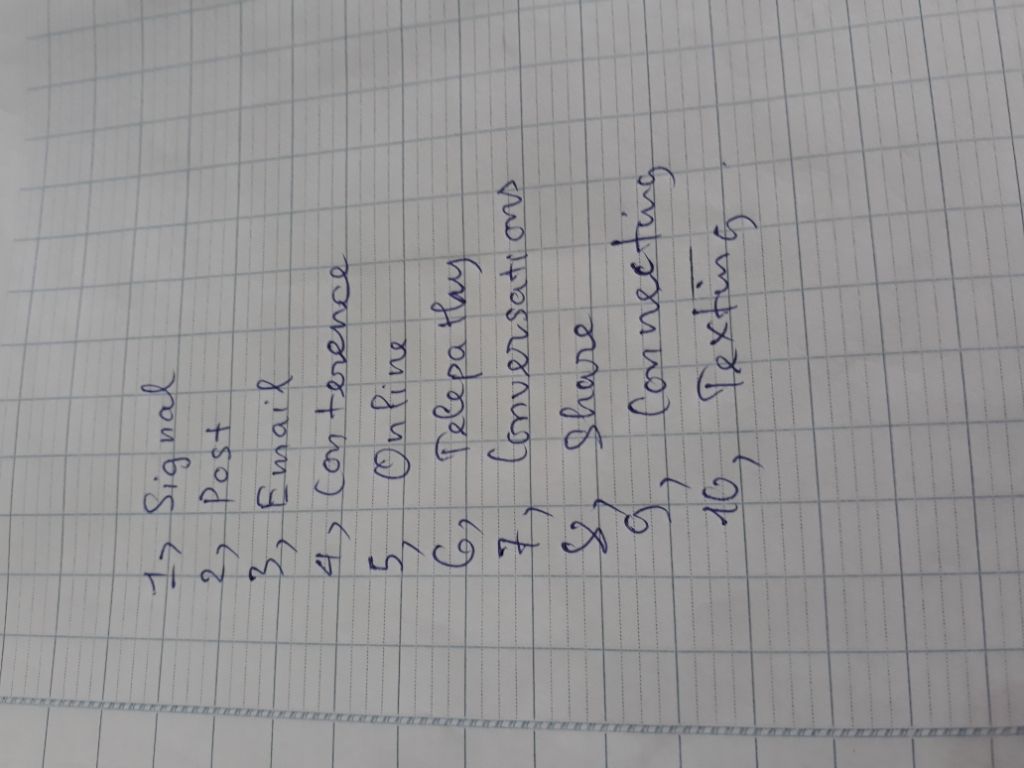 1, Signal
2, Post
3, Email
4, Conterence
5, Online
6, Telepathy
7, Conversations
8, Share
9, Connecting
10, Texting